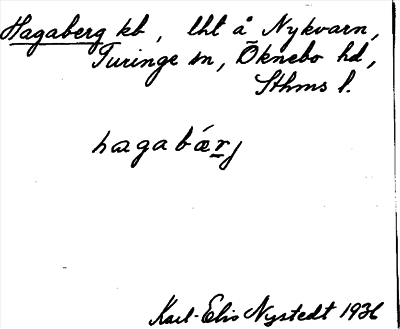 Hagaberg kb, lht å Nykvarn,
Turinge sn, Öknebo hd,
Sthms l.
hagabǽrj
Karl-Elis Nystedt 1936